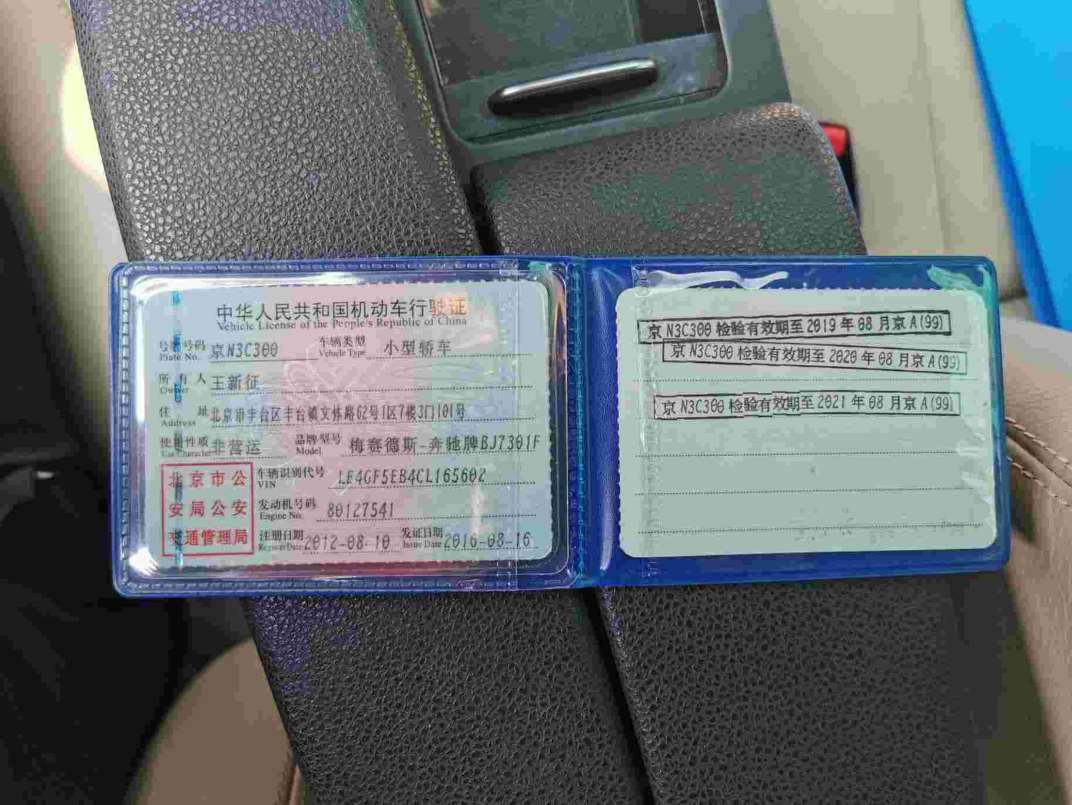 中华人民共和国机动车行驶证
Vehicle License of the People's Republic of China
号牌号码 京N3C300 车辆类型 小型轿车
Plate No. Vehicle Type
所有人 王新征
Owner
住址 北京市丰台区丰台镇文体路62号1区7楼3门1101号
Address
使用性质 非营运 品牌型号 梅赛德斯-奔驰牌BJ7301F
Use Character Model
北京市公安局公安交通管理局
车辆识别代号 LE4GF5EB4CL165602
VIN
发动机号码 80127541
Engine No.
注册日期 2012-08-10 发证日期 2016-08-16
Register Date Issue Date
京N3C300检验有效期至2019年08月京A(99)
京N3C300检验有效期至2020年08月京A(99)
京N3C300检验有效期至2021年08月京A(99)